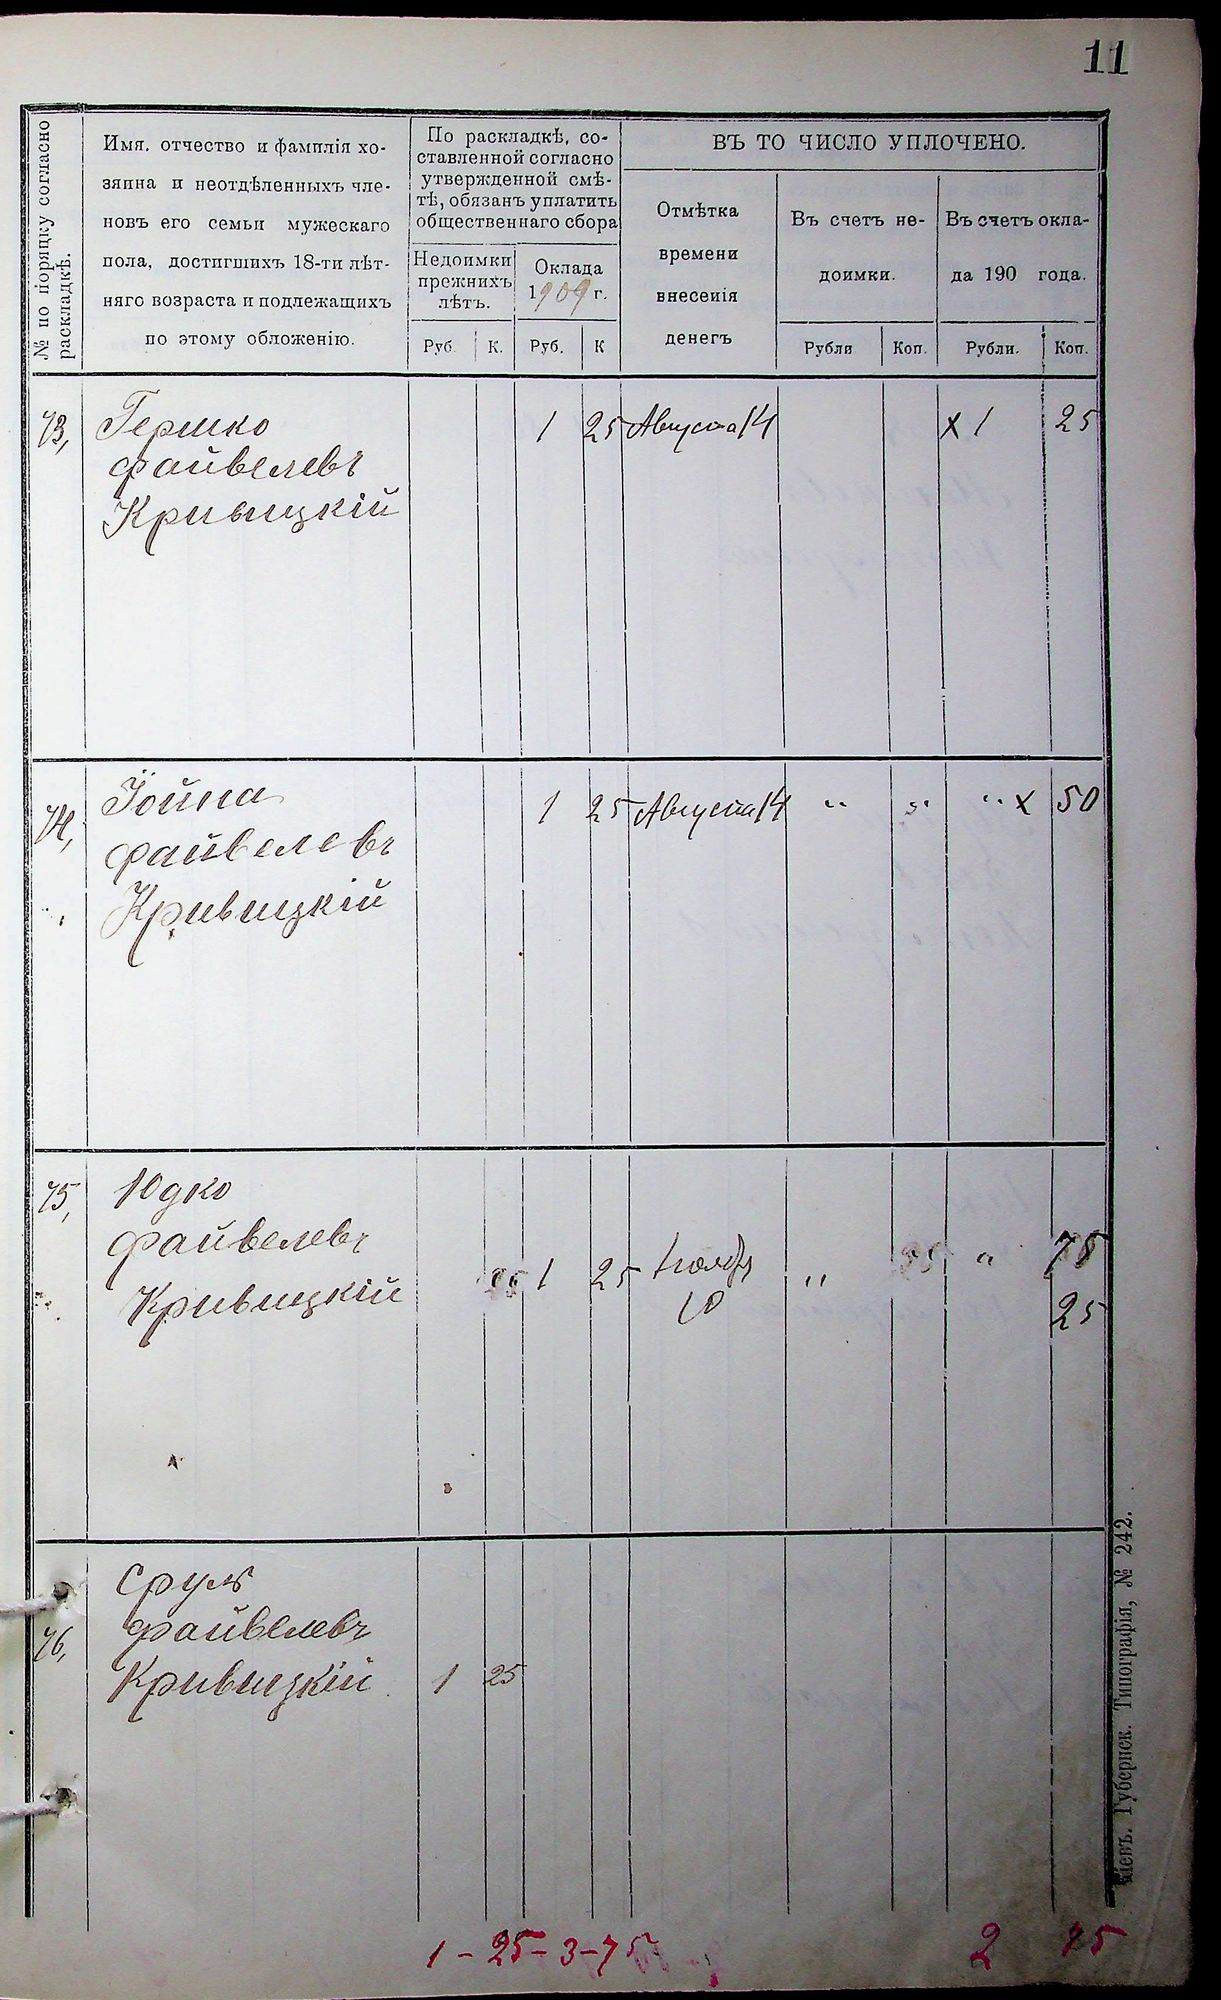 11
№ по порядку согласно
раскладкѣ.
Имя, отчество и фамилія хо-
зяина и неотдѣленныхъ чле-
новъ его семьи мужескаго
пола, достигшихъ 18-ти лѣт-
няго возраста и подлежащихъ
по этому обложенію.
По раскладкѣ, со-
ставленной согласно
утвержденной смѣ-
тѣ, обязанъ уплатить
общественнаго сбора
Недоимки
прежнихъ
лѣтъ.
Оклада
1909 г.
Руб. К. Руб. К
ВЪ ТО ЧИСЛО УПЛОЧЕНО.
Отмѣтка
времени
внесенія
денегъ
Въ счетъ не-
доимки.
Въ счетъ окла-
да 190 года.
Рубли Коп. Рубли. Коп.
73, Гершко 1 25 Августа 14 х 1 25
Файвелевъ
Кривицкій
74, Іойна 1 25 Августа 14 " " " х 50
Файвелевъ
Кривицкій
75, Юдко
Файвелевъ
Кривицкій 1 25 Ноября " " 75
10 25
Сруль
76, Файвелевъ
Кривицкій 1 25
1 - 25 - 3 - 75 2 75
Кіевъ. Губернск. Типографія, № 242.